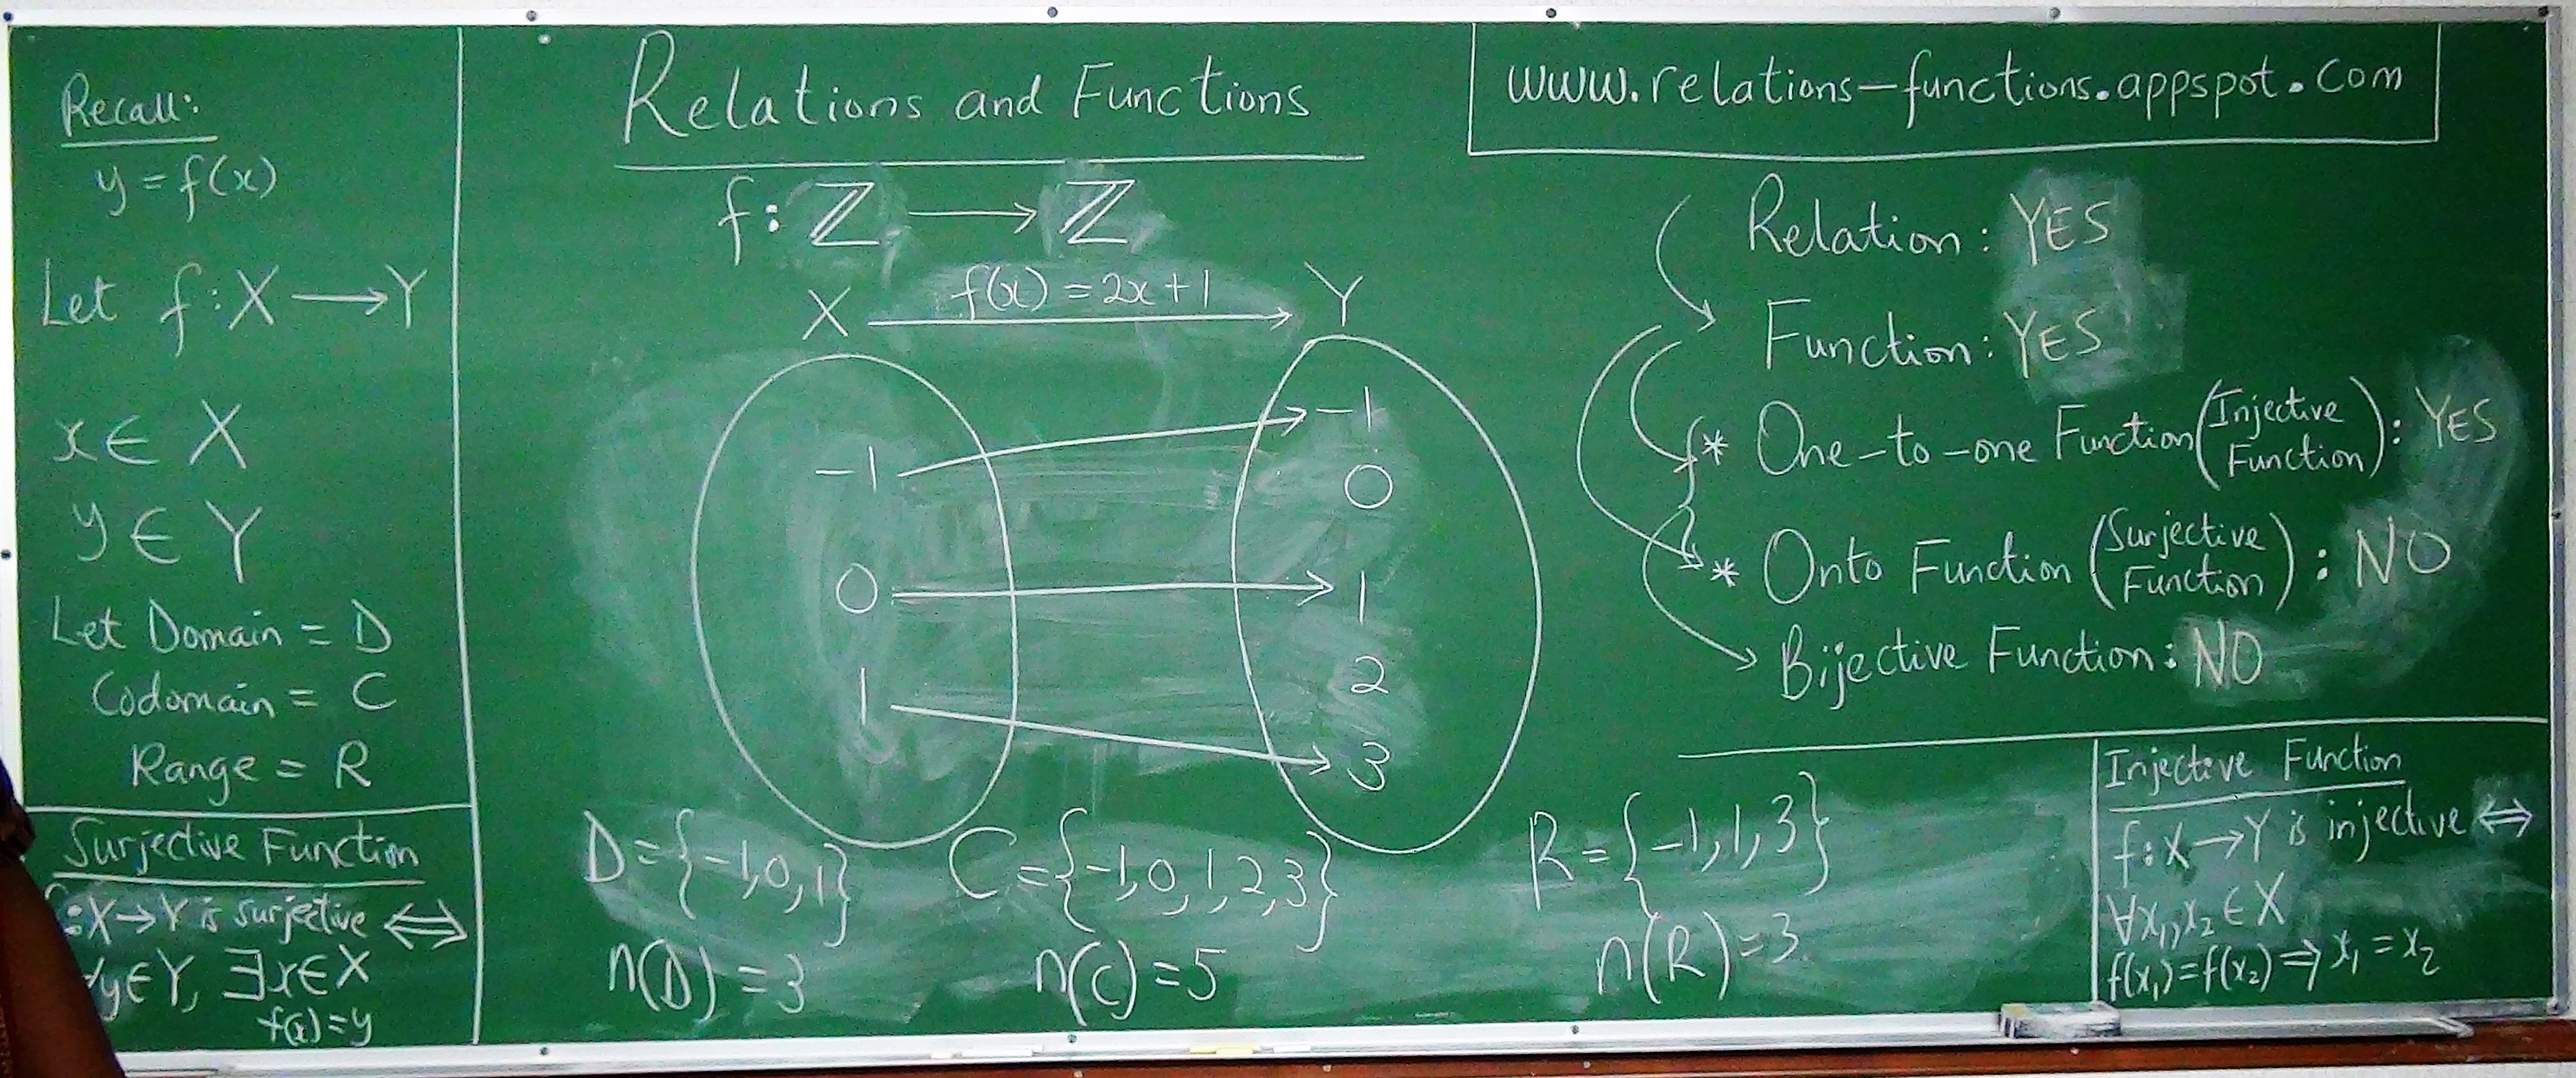 Recall:
y = f(x)
Let f : X ⟶ Y
x ∈ X
y ∈ Y
Let Domain = D
Codomain = C
Range = R
Surjective Function
: X → Y is surjective ⟺
y ∈ Y, ∃ x ∈ X
f(x) = y
Relations and Functions
f : ℤ ⟶ ℤ
X f(x) = 2x + 1 Y
-1
0
1
-1
0
1
2
3
D = {-1, 0, 1}
n(D) = 3
C = {-1, 0, 1, 2, 3}
n(C) = 5
R = {-1, 1, 3}
n(R) = 3
www.relations-functions.appspot.com
Relation : YES
Function : YES
* One-to-one Function (Injective Function) : YES
* Onto Function (Surjective Function) : NO
Bijective Function : NO
Injective Function
f : X → Y is injective ⟺
∀ x₁, x₂ ∈ X
f(x₁) = f(x₂) ⇒ x₁ = x₂